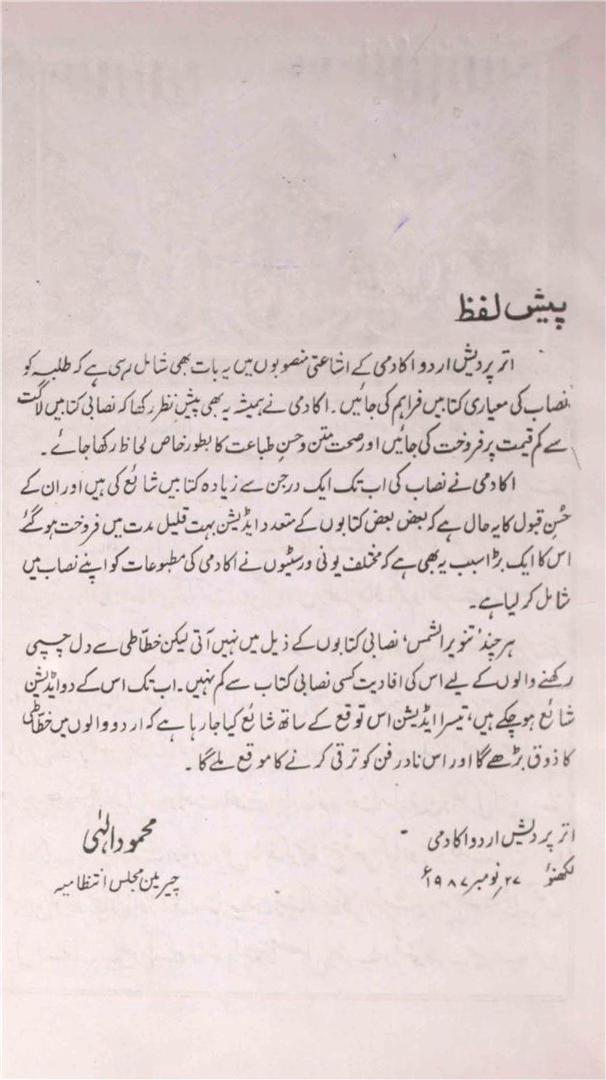 پیش لفظ
اتر پردیش اردو اکادمی کے اشاعتی منصوبوں میں یہ بات بھی شامل رہی ہے کہ طلبہ کو
نصاب کی معیاری کتابیں فراہم کی جائیں۔ اکادمی نے ہمیشہ یہ بھی پیشِ نظر رکھا کہ نصابی کتابیں لاگت
سے کم قیمت پر فروخت کی جائیں اور صحتِ متن و حسنِ طباعت کا بطور خاص لحاظ رکھا جائے۔
اکادمی نے نصاب کی اب تک ایک درجن سے زیادہ کتابیں شائع کی ہیں اور ان کے
حُسنِ قبول کا یہ حال ہے کہ بعض بعض کتابوں کے متعدد ایڈیشن بہت قلیل مدت میں فروخت ہوگئے
اس کا ایک بڑا سبب یہ بھی ہے کہ مختلف یونی ورسٹیوں نے اکادمی کی مطبوعات کو اپنے نصاب میں
شامل کرلیا ہے۔
ہرچند 'تنویر الشمس' نصابی کتابوں کے ذیل میں نہیں آتی لیکن خطّاطی سے دل چسپی
رکھنے والوں کے لیے اس کی افادیت کسی نصابی کتاب سے کم نہیں۔ اب تک اس کے دو ایڈیشن
شائع ہوچکے ہیں، تیسرا ایڈیشن اس توقع کے ساتھ شائع کیا جارہا ہے کہ اردو والوں میں خطّاطی
کا ذوق بڑھے گا اور اس نادر فن کو ترقی کرنے کا موقع ملے گا۔
اتر پردیش اردو اکادمی
لکھنؤ ۲۷؍نومبر ۱۹۸۷ء
محمود الٰہی
چیرمین مجلس انتظامیہ